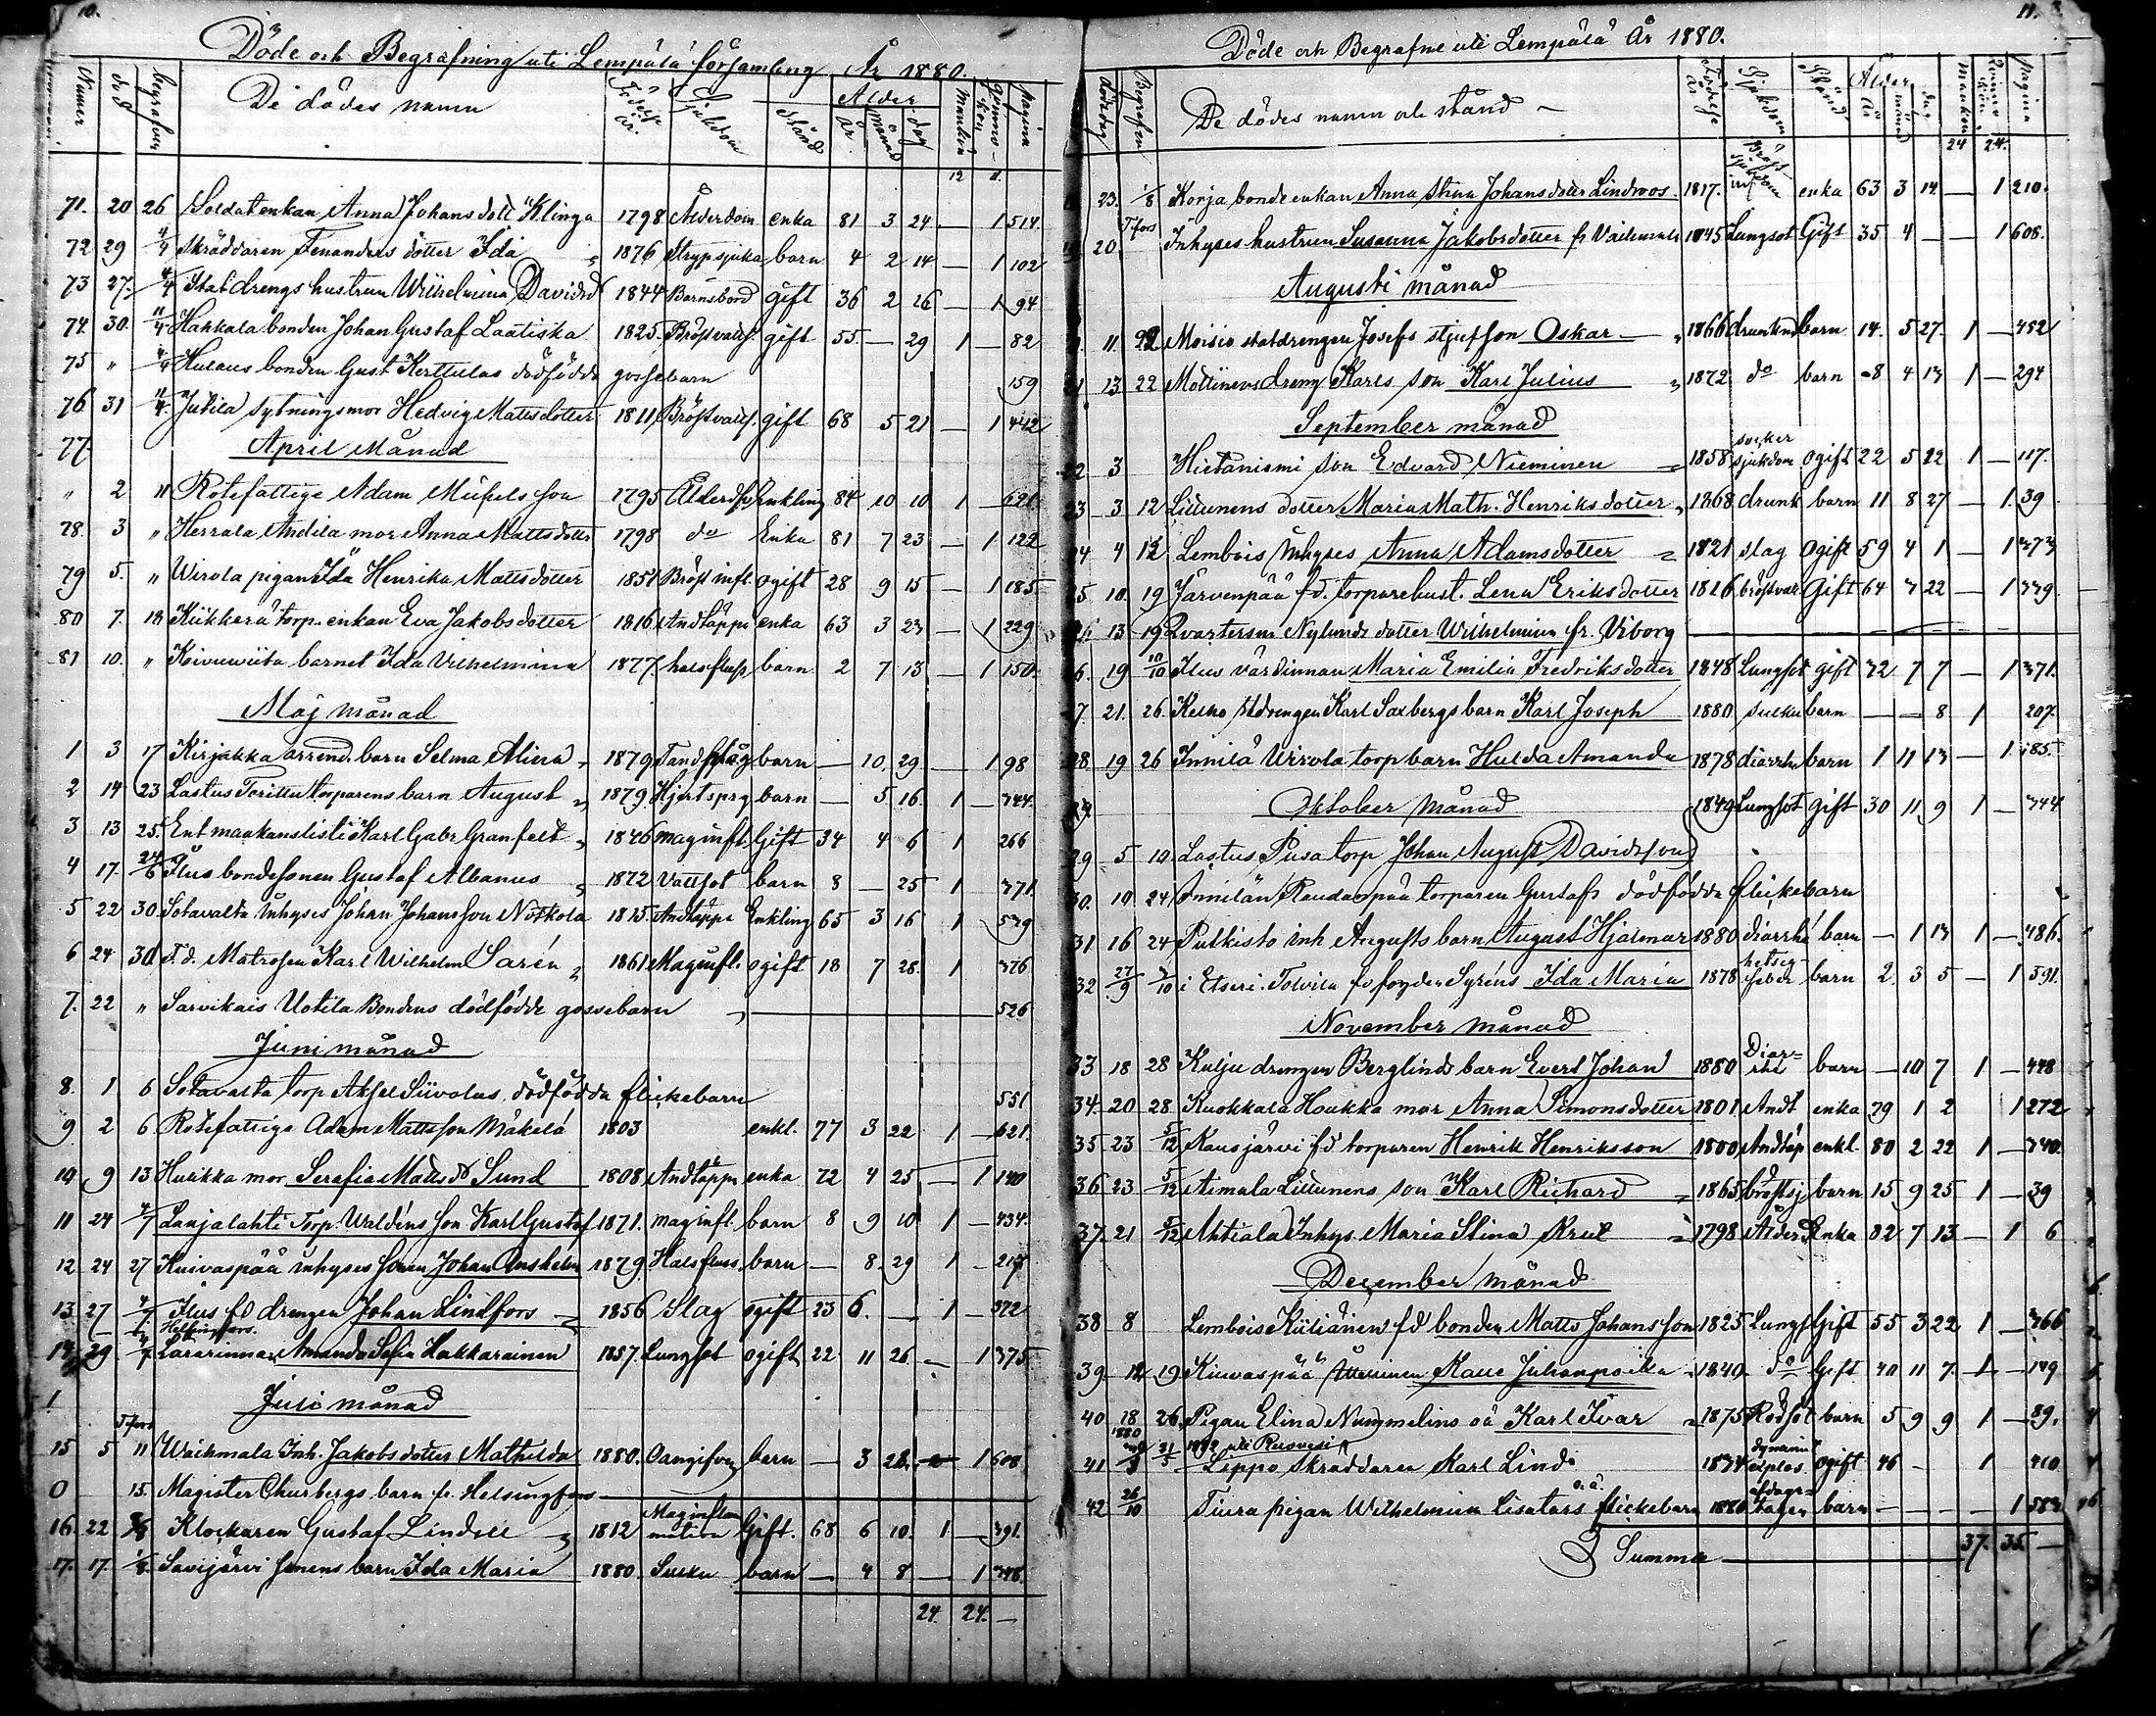 10.
Döde och Begrafning uti Lempälä församling År 1880.
Numer död begrafven De dödes namn Födelse år. Sjukdom Stånd Ålder år månad dag Mankön Qvinnokön Pagina
12 11.
71. 20 26 Soldatenkan Anna Johansdott Klinga 1798 Ålderdom enka 81 3 24 — 1 514
72 29 4/4 Skräddaren Fenanders dotter Ida " 1876 Strypsjuka barn 4 2 14 — 1 102
73 27. 4/4 Statdrengs hustrun Wilhelmina Davidsd 1844 Barnsbörd gift 36 2 26 — 1 94
74. 30. 11/4 Hakkala bonden Johan Gustaf Laatiska 1825. Bröstvattus. gift 55. — 29 1 — 82
75 " 4/4 Kulaus bonden Gust Kerttulas dödfödda gossebarn 159
76 31 11/4 Jutila sytningsmor Hedvig Mattsdotter 1811 Bröstvatts. gift 68 5 21 — 1 442
77. April Månad
" 2 11 Rotefattige Adam Mikels son 1795 Ålderd Enkling 84 10 10 1 — 621
78. 3 " Herrala Andila mor Anna Mattsdotter 1798 do Enka 81 7 23 — 1 122
79 5. " Wirola pigan Ida Henrika Mattsdotter 1851 Bröst infl. ogift 28 9 15 — 1 185.
80 7. 18 Kiikkerä torp. enkan Eva Jakobsdotter 1816 Andtäppa enka 63 3 23 — 1 229
81 10. " Koivuviita barnet Ida Vilhelmina 1877. halsflus barn 2 7 13 — 1 150
Maj månad
1 3 17 Kirjakka arrend. barn Selma Alina 1879 Tandspräg barn — 10. 29 — 1 98
2 14 23 Lastus Torittu torparens barn August " 1879 Hjertsprg barn — 5 16. 1 — 344.
3 13 25. Ent maakanslisti Karl Gabr Granfelt " 1846 maginfl. Gift 34 4 6 1 266
4 17. 24/6 Ilus bondesonen Gustaf Albanus " 1872 Vattsot barn 8 — 25 1 371
5 22 30. Sotavalta inhyses Johan Johansson Notkola 1815. Andtäppa Enkling 65 3 16 1 539
6 24 30. F.d. Matrosen Karl Wilhelm Sarén " 1861 Maginfl. ogift 18 7 28. 1 376
7. 22 " Sarvikais Uotila Bondens dödfödde gossebarn 526
Juni månad
8. 1 6 Sotavalta torp Aksel Siivolas dödfödda flickebarn 551
9 2 6 Rotefattige Adam Mattsson Mäkelä 1803 enkl. 77 3 22 1 — 621.
10 9 13 Hulikka mor Serefia Matts dr Sund 1808 Andtäppa enka 72 4 25 — 1 140
11 24 4/7 Laujalahti Torp. Waldéns son Karl Gustaf 1871. maginfl. barn 8 9 10 1 — 434.
12 24 27 Kuivaspää inhyses sonen Johan Anshelm 1879. Halsfluss. barn — 8. 29 1 — 217
13. 27 4/7 Ilus f.d drengen Johan Lindfors 1856 Slag ogift 23 6. — 1 — 372
Helsingfors.
14 29 4/7 Lärarinnan Amanda Sofia Hakkarainen 1857. Lungsot ogift 22 11 26 — 1 375
Juli månad
T.fors
15 5 11 Waihmala Inh. Jakobs dotter Mathilda 1880. Oangifven barn — 3 28. 1 608
0 15. Magister Churbergs barn fr. Helsingfors
16. 22 Klockaren Gustaf Lindell 1812 Maginflammation Gift. 68 6 10. 1 — 391.
17. 17. 1/8. Savijärvi sonens barn Ida Maria 1880. Sucku barn — 4 8 — 1 348.
24. 24. —
11.
Döde och Begrafne uti Lempälä År 1880.
Dödsdag Begrafven De dödes namn och stånd — Födelse år Sjukdom Stånd Ålder år månad dag Mankön Qvinnokön Pagina
24 24.
23. 1/8 Korja bonde enkan Anna Stina Johansdotter Lindroos 1817. Bröst sjukdom enka 63 3 14 — 1 210.
T.fors
20. Inhyses hustrun Susanna Jakobsdotter fr Vaihmala 1845 Lungsot Gift 35 4 — — 1 608.
Augusti månad
11. 22 Moisio statdrengen Josefs styfson Oskar " 1866 drunknd barn 14. 5 27. 1 — 452
21 13 22 Mottinens dreng Karls son Karl Julius " 1872. do barn 8 4 13 1 — 294
September månad
22 3 Hietaniemi son Edvard Nieminen 1858 socker sjukdom Ogift 22 5 22 1 — 117.
23 3 12 Littunens dotter Maria Math. Henriksdotter 1868 drunk barn 11 8 27 — 1. 39
24 4 12 Lembois Inhyses Anna Adamsdotter 1821 slag ogift 59 4 1 — 1 373
25 10. 19 Järvenpää f.d. torparehust. Lena Eriksdotter 1816 bröstvat Gift 64 3 22 — 1 339
13 19 Qvartersm Nylunds dotter Wilhelmina fr. Viborg
26. 19 10/10 Ilus värdinnan Maria Emilia Fredriksdotter 1848 Lungsot gift 32 7 7 — 1 371.
27. 21. 26. Kelho stdrengen Karl Saxbergs barn Karl Joseph 1880 sucku barn — — 8 1 207.
28. 19 26 Innilä Wirola torp barn Hulda Amanda 1878 diarrhe barn 1 11 13 — 1 185.
Oktober månad 1849 Lungsot gift 30 11 9 1 — 344
29 5 10. Lastus Pusa torp Johan August Davidsson
30. 10 24 Innilän Raudanpää torparen Gustafs dödfödda flickebarn
31 16 24 Putkisto inh Augusts barn August Hjalmar 1880 diarrhé barn — 1 13 1 — 486.
32 27/9 3/10 i Etseri Tolvila f.d fogden Syréns Ida Maria 1878 hetsig feber barn 2. 3 5 — 1 591.
November månad
33 18 28 Kulju drengen Berglinds barn Evert Johan 1880 Diarrhé barn — 10 7 1 — 448
34. 20 28 Kuokkala Houkka mor Anna Simonsdotter 1801 Andt enka 79 1 2 1 272
35 23 5/12 Kausjärvi f.d torparen Henrik Henriksson 1800 Andtäp enkl. 80 2 22 1 — 340
36 23 5/12 Aimala Littunens son Karl Richard 1865 bröstsj barn 15 9 25 1 — 39
37. 21 5/12 Ahtiala Inhys. Maria Stina Krul 1798 Ålderd Enka 82 7 13 — 1 6
December månad
38 8 Lembois Kiiliäinen f.d bonden Matts Johansson 1825 Lungs Gift 55 3 22 1 — 366
39 12 19 Kuivaspää Kalle Juhanpoika 1840 do Gift 40 11 7. 1 — 149
40 18 26. Pigan Elina Nummelins oä Karl Ivar 1875 Rödsot barn 5 9 9 1 — 89.
41 Lippo Skräddaren Karl Lind 1834 dynamit explos ogift 46 — 1 410
42 26/10 Tiura pigan Wilhelmina Lisatars o.ä. flickebarn 1880 afdagatagen barn — — — — 1 583
Summa 37. 35 —